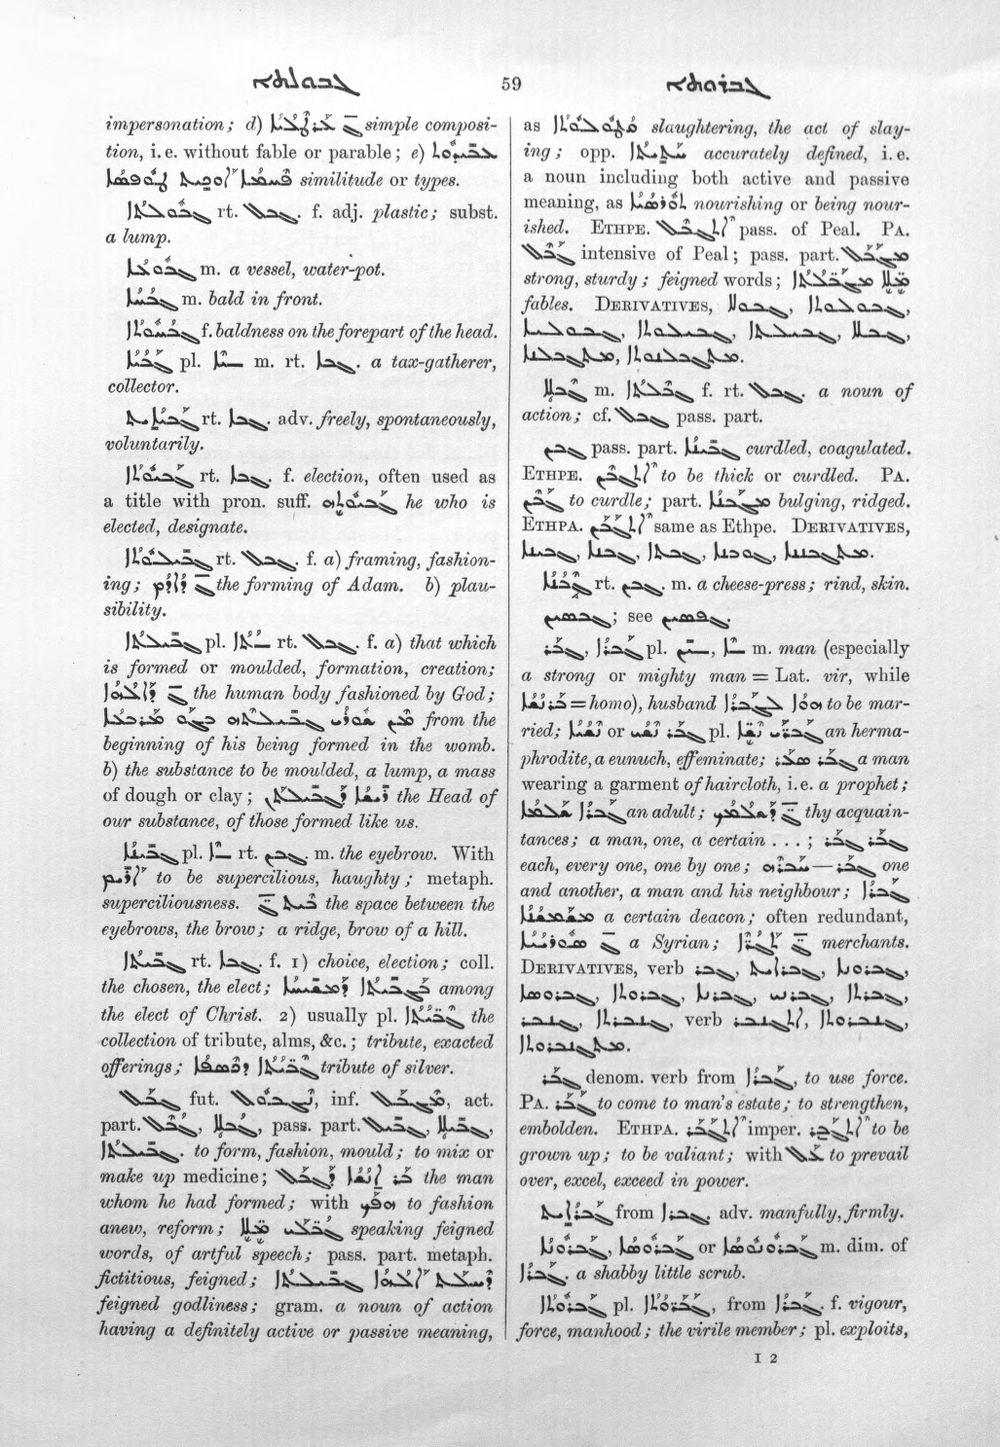 ܓܒܘܠܬܐ 59 ܓܒܪܘܬܐ
impersonation; d) simple composi-
tion, i. e. without fable or parable; e)
similitude or types.
ܓܒܘܠܬܐ rt. ܓܒܠ. f. adj. plastic; subst.
a lump.
ܓܒܘܥܐ m. a vessel, water-pot.
ܓܒܚܐ m. bald in front.
ܓܒܚܘܬܐ f. baldness on the forepart of the head.
ܓܒܝܐ pl. m. rt. ܓܒܐ. a tax-gatherer,
collector.
ܓܒܝܐܝܬ rt. ܓܒܐ. adv. freely, spontaneously,
voluntarily.
ܓܒܝܘܬܐ rt. ܓܒܐ. f. election, often used as
a title with pron. suff. ܓܒܝܘܬܗ he who is
elected, designate.
ܓܒܝܠܘܬܐ rt. ܓܒܠ. f. a) framing, fashion-
ing; ܓ ܕܐܕܡ the forming of Adam. b) plau-
sibility.
ܓܒܝܠܬܐ pl. rt. ܓܒܠ. f. a) that which
is formed or moulded, formation, creation;
ܓ ܕܐܠܗܐ the human body fashioned by God;
ܩܕܡ ܫܘܪܝ ܓܒܝܠܬܗ ܕܒܓܘ ܡܪܒܥܐ from the
beginning of his being formed in the womb.
b) the substance to be moulded, a lump, a mass
of dough or clay; ܪܝܫܐ ܕܓܒܝܠܬܢ the Head of
our substance, of those formed like us.
ܓܒܝܢܐ pl. rt. ܓܒܢ. m. the eyebrow. With
ܐܪܝܡ to be supercilious, haughty; metaph.
superciliousness. ܒܝܬ ܓ the space between the
eyebrows, the brow; a ridge, brow of a hill.
ܓܒܝܬܐ rt. ܓܒܐ. f. 1) choice, election; coll.
the chosen, the elect; ܒܓܒܝܬܐ ܕܡܫܝܚܐ among
the elect of Christ. 2) usually pl. ܓܒܝܬܐ the
collection of tribute, alms, &c.; tribute, exacted
offerings; ܓܒܝܬܐ ܕܟܣܦܐ tribute of silver.
ܓܒܠ fut. ܢܓܒܘܠ, inf. ܡܓܒܠ, act.
part. ܓܒܠ, ܓܒܠܐ, pass. part. ܓܒܝܠ, ܓܒܝܠܐ,
ܓܒܝܠܬܐ. to form, fashion, mould; to mix or
make up medicine; ܒܪ ܐܢܫܐ ܕܓܒܠ the man
whom he had formed; with ܗܦܟ to fashion
anew, reform; ܓܒܠܝ ܡܠܐ speaking feigned
words, of artful speech; pass. part. metaph.
fictitious, feigned; ܕܚܠܬ ܐܠܗܐ ܓܒܝܠܬܐ
feigned godliness; gram. a noun of action
having a definitely active or passive meaning,
as ܩܛܘܠܘܬܐ slaughtering, the act of slay-
ing; opp. accurately defined, i. e.
a noun including both active and passive
meaning, as ܬܘܪܣܝܐ nourishing or being nour-
ished. ETHPE. ܐܬܓܒܠ pass. of Peal. PA.
ܓܒܠ intensive of Peal; pass. part. ܡܓܒܠ
strong, sturdy; feigned words; ܡܠܐ ܡܓܒܠܬܐ
fables. DERIVATIVES, ܓܒܘܠܐ, ܓܒܘܠܘܬܐ,
ܓܒܘܠܝܐ, ܓܒܘܠܬܐ, ܓܒܝܠܘܬܐ, ܓܒܝܠܬܐ, ܓܒܠܐ,
ܡܬܓܒܠܢܐ, ܡܬܓܒܠܢܘܬܐ.
ܓܒܠܐ m. ܓܒܠܬܐ f. rt. ܓܒܠ. a noun of
action; cf. ܓܒܠ pass. part.
ܓܒܢ pass. part. ܓܒܝܢܐ curdled, coagulated.
ETHPE. ܐܬܓܒܢ to be thick or curdled. PA.
ܓܒܢ to curdle; part. ܡܓܒܢܐ bulging, ridged.
ETHPA. ܐܬܓܒܢ same as Ethpe. DERIVATIVES,
ܓܒܝܢܐ, ܓܒܢܐ, ܓܒܬܐ, ܓܘܒܢܐ, ܡܬܓܒܢܢܐ.
ܓܒܢܐ rt. ܓܒܢ. m. a cheese-press; rind, skin.
ܓܒܣܝܢ; see ܓܦܣܝܢ.
ܓܒܪ, ܓܒܪܐ pl. m. man (especially
a strong or mighty man = Lat. vir, while
ܒܪܢܫܐ = homo), husband ܗܘܐ ܠܓܒܪܐ to be mar-
ried; ܓܒܪ ܢܫܝ or ܢܫܝܐ pl. ܓܒܪܝ ܢܫܐ an herma-
phrodite, a eunuch, effeminate; ܓܒܪ ܣܥܪ a man
wearing a garment of haircloth, i. e. a prophet;
ܓܒܪܐ ܡܫܡܠܝܐ an adult; ܓ ܕܫܠܡܟ thy acquain-
tances; a man, one, a certain . . . ; ܓܒܪ ܓܒܪ
each, every one, one by one; ܓܒܪ—ܚܒܪܗ one
and another, a man and his neighbour; ܓܒܪܐ
ܡܫܡܫܢܐ a certain deacon; often redundant,
ܓ ܣܘܪܝܝܐ a Syrian; ܓ ܬܓܪܐ merchants.
DERIVATIVES, verb ܓܒܪ, ܓܒܪܐܝܬ, ܓܒܪܘܢܐ,
ܓܒܪܘܣܐ, ܓܒܪܘܬܐ, ܓܒܪܢܐ, ܓܒܪܝ, ܓܒܪܬܐ,
ܓܢܒܪ, ܓܢܒܪܬܐ, verb ܐܬܓܢܒܪ, ܓܢܒܪܘܬܐ,
ܡܬܓܢܒܪܘܬܐ.
ܓܒܪ denom. verb from ܓܒܪܐ, to use force.
PA. ܓܒܪ to come to man's estate; to strengthen,
embolden. ETHPA. ܐܬܓܒܪ imper. ܐܬܓܒܪ to be
grown up; to be valiant; with ܥܠ to prevail
over, excel, exceed in power.
ܓܒܪܐܝܬ from ܓܒܪܐ. adv. manfully, firmly.
ܓܒܪܘܢܐ, ܓܒܪܘܣܐ or ܓܒܪܘܢܘܣܐ m. dim. of
ܓܒܪܐ. a shabby little scrub.
ܓܒܪܘܬܐ pl. ܓܒܪܘܬܐ, from ܓܒܪܐ. f. vigour,
force, manhood; the virile member; pl. exploits,
I 2